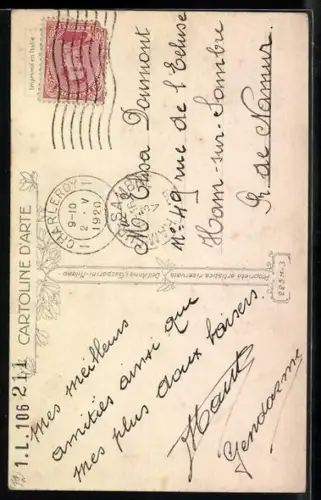 Imprimé en Italie
CARTOLINE D'ARTE
CHARLEROY 1
9-10
2 · V
1920
Elisa Daumont
N° 49 rue de l'Ecluse
Ham-sur-Sambre
Pr de Namur.
Proprietà artistica riservata
Dell'Anna & Gasparini - Milano
228 M-3
Mes meilleurs
amitiés ainsi que
mes plus doux baisers.
Gendarme
1.L.106 211